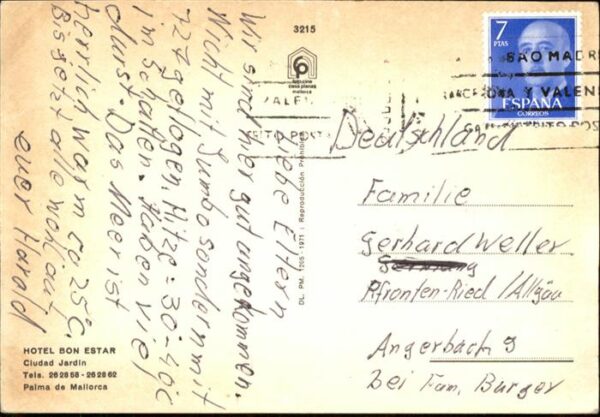 3215
casa planas
mallorca
7
PTAS
ESPAÑA
CORREOS
Deutschland
Familie
Gerhard Weller
Pfronten-Ried / Allgäu
Angerbach 9
bei Fam. Burger
Liebe Eltern
Wir sind hier gut angekommen.
Nicht mit Jumbo sondern mit
727 geflogen. Hitze = 30-40°C
im Schatten. Haben viel
durst. Das Meer ist
herrlich warm ca 25°C.
Bis jetzt alle wohlauf
euer Harald
DL. PM. 1205 - 1971 | Reproducción Prohibida
HOTEL BON ESTAR
Ciudad Jardin
Tels. 262858 - 262862
Palma de Mallorca